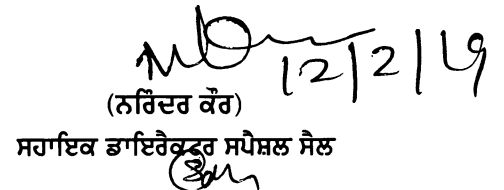 12/2/19
(ਨਰਿੰਦਰ ਕੌਰ)
ਸਹਾਇਕ ਡਾਇਰੈਕਟਰ ਸਪੈਸ਼ਲ ਸੈਲ